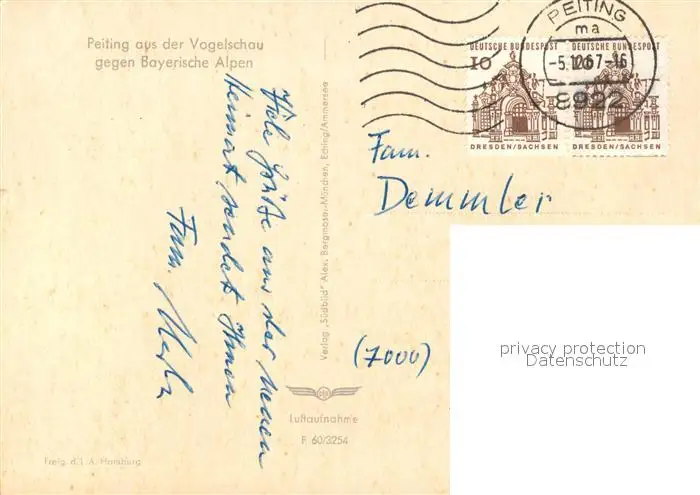 Peiting aus der Vogelschau
gegen Bayerische Alpen
Viele Grüße aus der neuen
Heimat sendet Ihnen
Fam.
Verlag „Südbild" Alex. Bergmoser-München, Eching/Ammersee
Luftaufnahme
F 60/3254
Freig. d. L.A. Hamburg
PEITING
ma
-5.10.67-16
8922
DEUTSCHE BUNDESPOST
10
DRESDEN/SACHSEN
DEUTSCHE BUNDESPOST
DRESDEN/SACHSEN
Fam.
Demmler
(7000)
privacy protection
Datenschutz